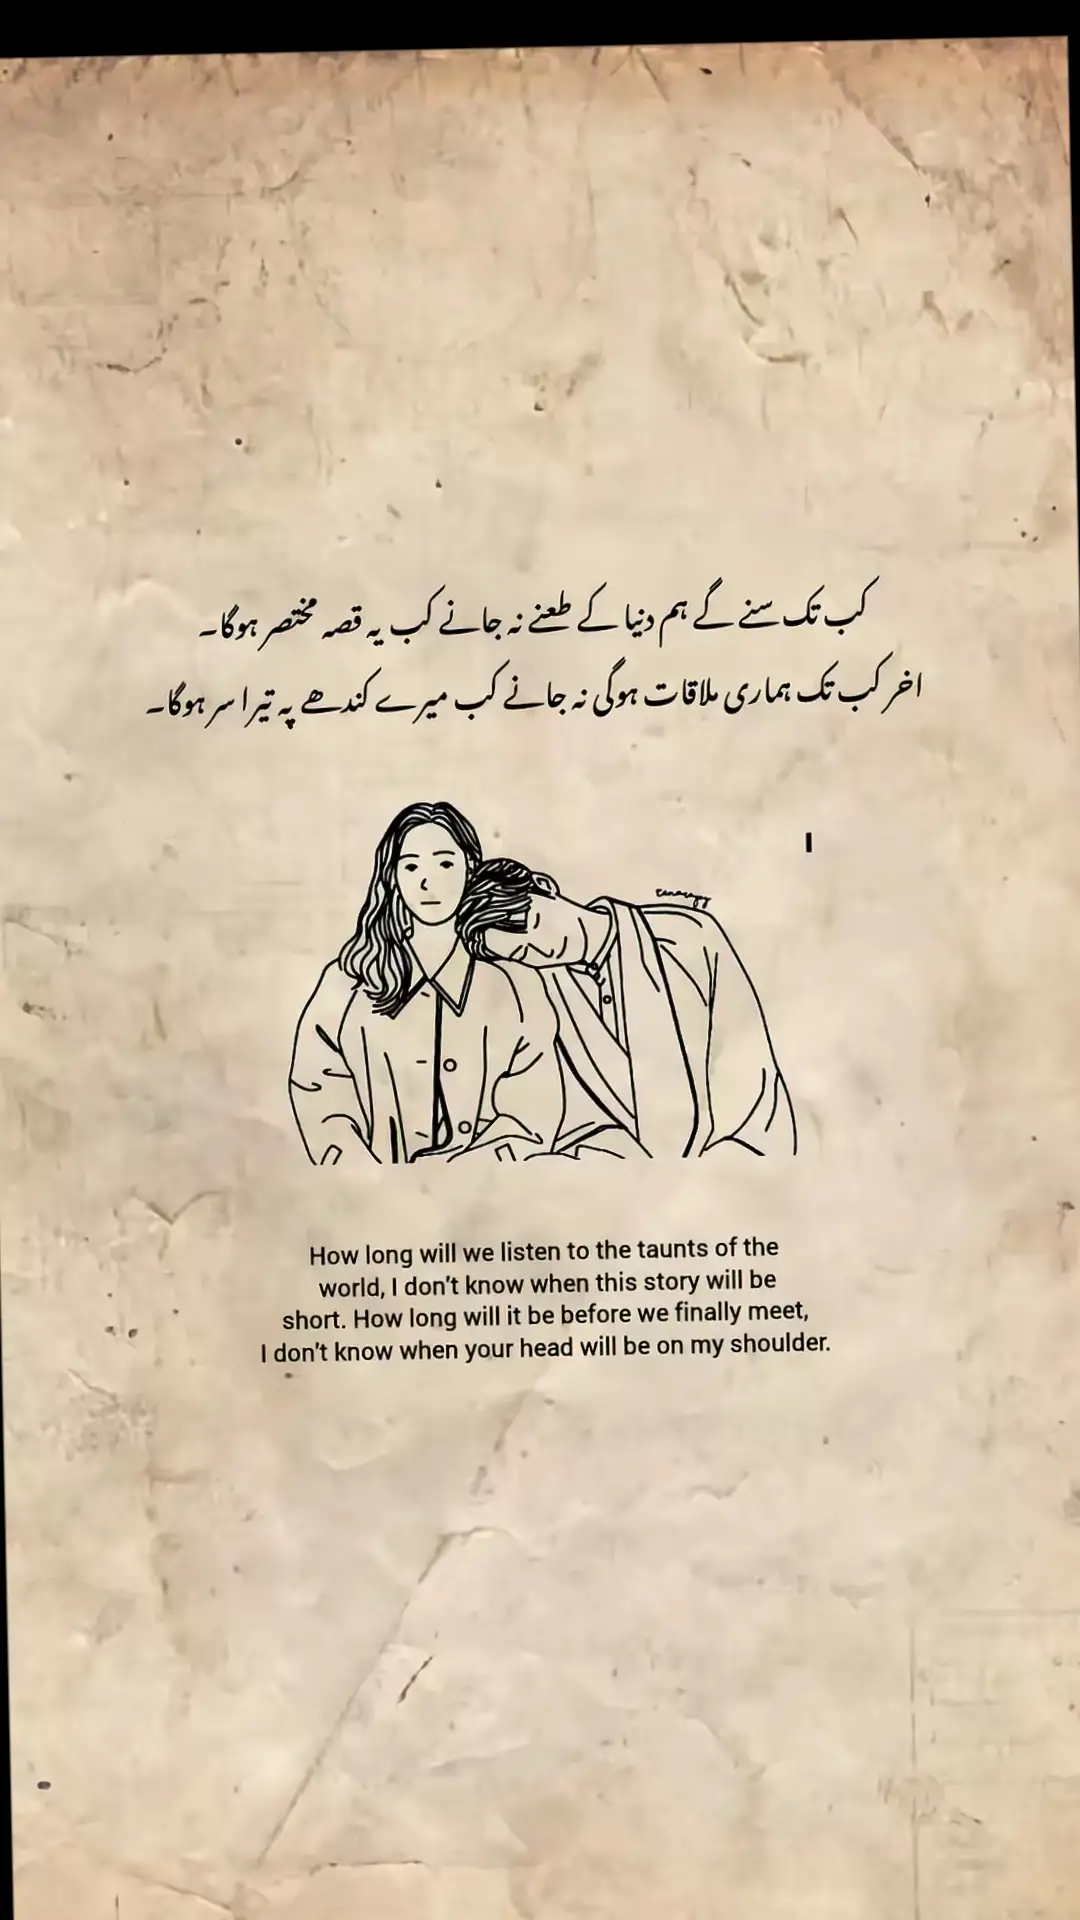 کب تک سنے گے ہم دنیا کے طعنے نہ جانے کب یہ قصہ مختصر ہوگا۔
اخر کب تک ہماری ملاقات ہوگی نہ جانے کب میرے کندھے پہ تیرا سر ہوگا۔
How long will we listen to the taunts of the
world, I don't know when this story will be
short. How long will it be before we finally meet,
I don't know when your head will be on my shoulder.